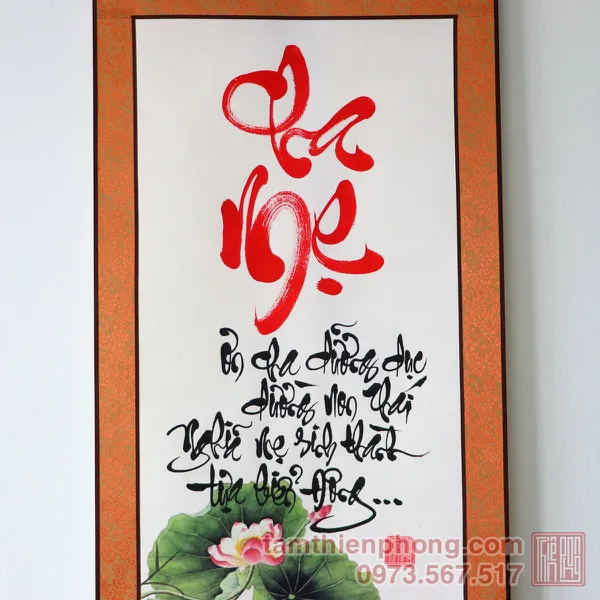 Cha
Mẹ
Ơn cha dưỡng dục
dường non thái
Nghĩa mẹ sinh thành
tựa biển Đông...
tamthienphong.com
0973.567.517